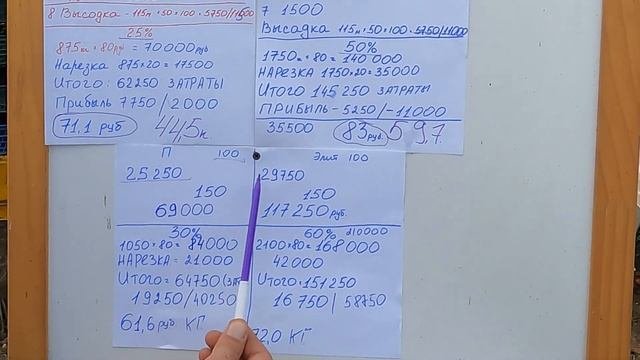 8 Высодка - 115м • 50 • 100 • 5750/11500
25%
875кг • 80руб = 70000руб
Нарезка 875×20 = 17500
Итого: 62250 ЗАТРАТЫ
Прибыль 7750/2000
71,1 руб 44,5к.
7 1500
Высадка 115м • 50 • 100 • 5750/11000
50%
1750м • 80 = 140000
НАРЕЗКА 1750×20 = 35000
Итого 145250 ЗАТРАТЫ
ПРИБЫЛЬ - 5250/-11000
35500 83руб. 59,7
П 100
25250
150
69000
30%
1050×80 = 84000
НАРЕЗКА = 21000
Итого = 64750 (ЗАТ
19250/40250
61,6 руб КГ
Элит 100
29750
150
117250руб.
60% 210000
2100×80 = 168000
42000
Итого • 151250
16750 | 58750
72,0 КГ